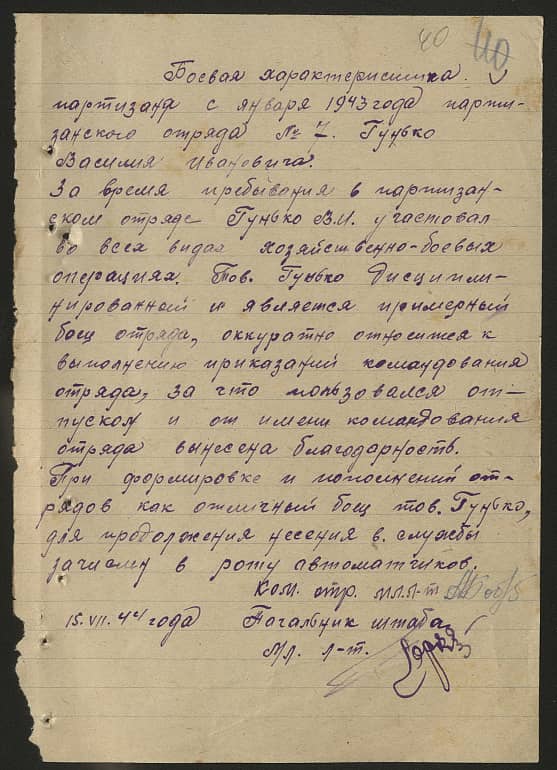 40 40
Боевая характеристика.
партизана с января 1943 года парти-
занского отряда № 7. Гунько
Василия Ивановича.
За время пребывания в партизан-
ском отряде Гунько В.И. участовал
во всех видах хозяйственно-боевых
операциях. Тов. Гунько дисципли-
нированный и является примерный
боец отряда, оккуратно относится к
выполнению приказаний командования
отряда, за что пользовался от-
пуском и от имени командования
отряда вынесена благодарность.
При формировке и пополнений от-
рядов как отличный боец тов. Гунько,
для продолжения несения в. службы
зачислен в роту автоматчиков.
Ком. отр. мл. л-т
15.VII.44 года Начальник штаба
Мл. л-т.